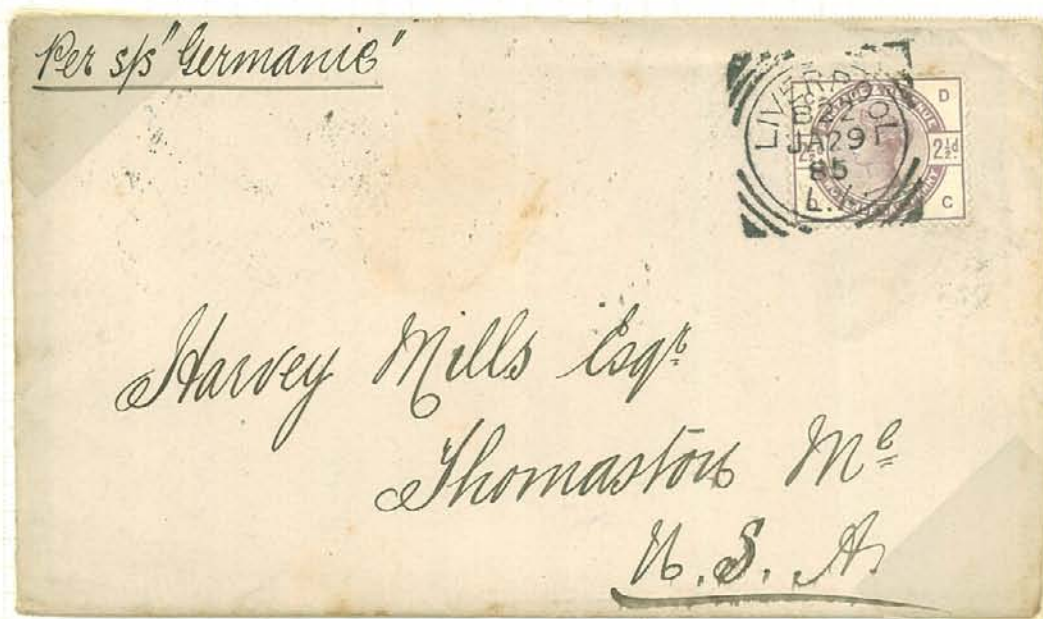 Per s/s "Germanic"
LIVERPOOL
JA 29
85
L.V.
D
2½d.
C
Harvey Mills Esqr.
Thomaston Me
U. S. A.